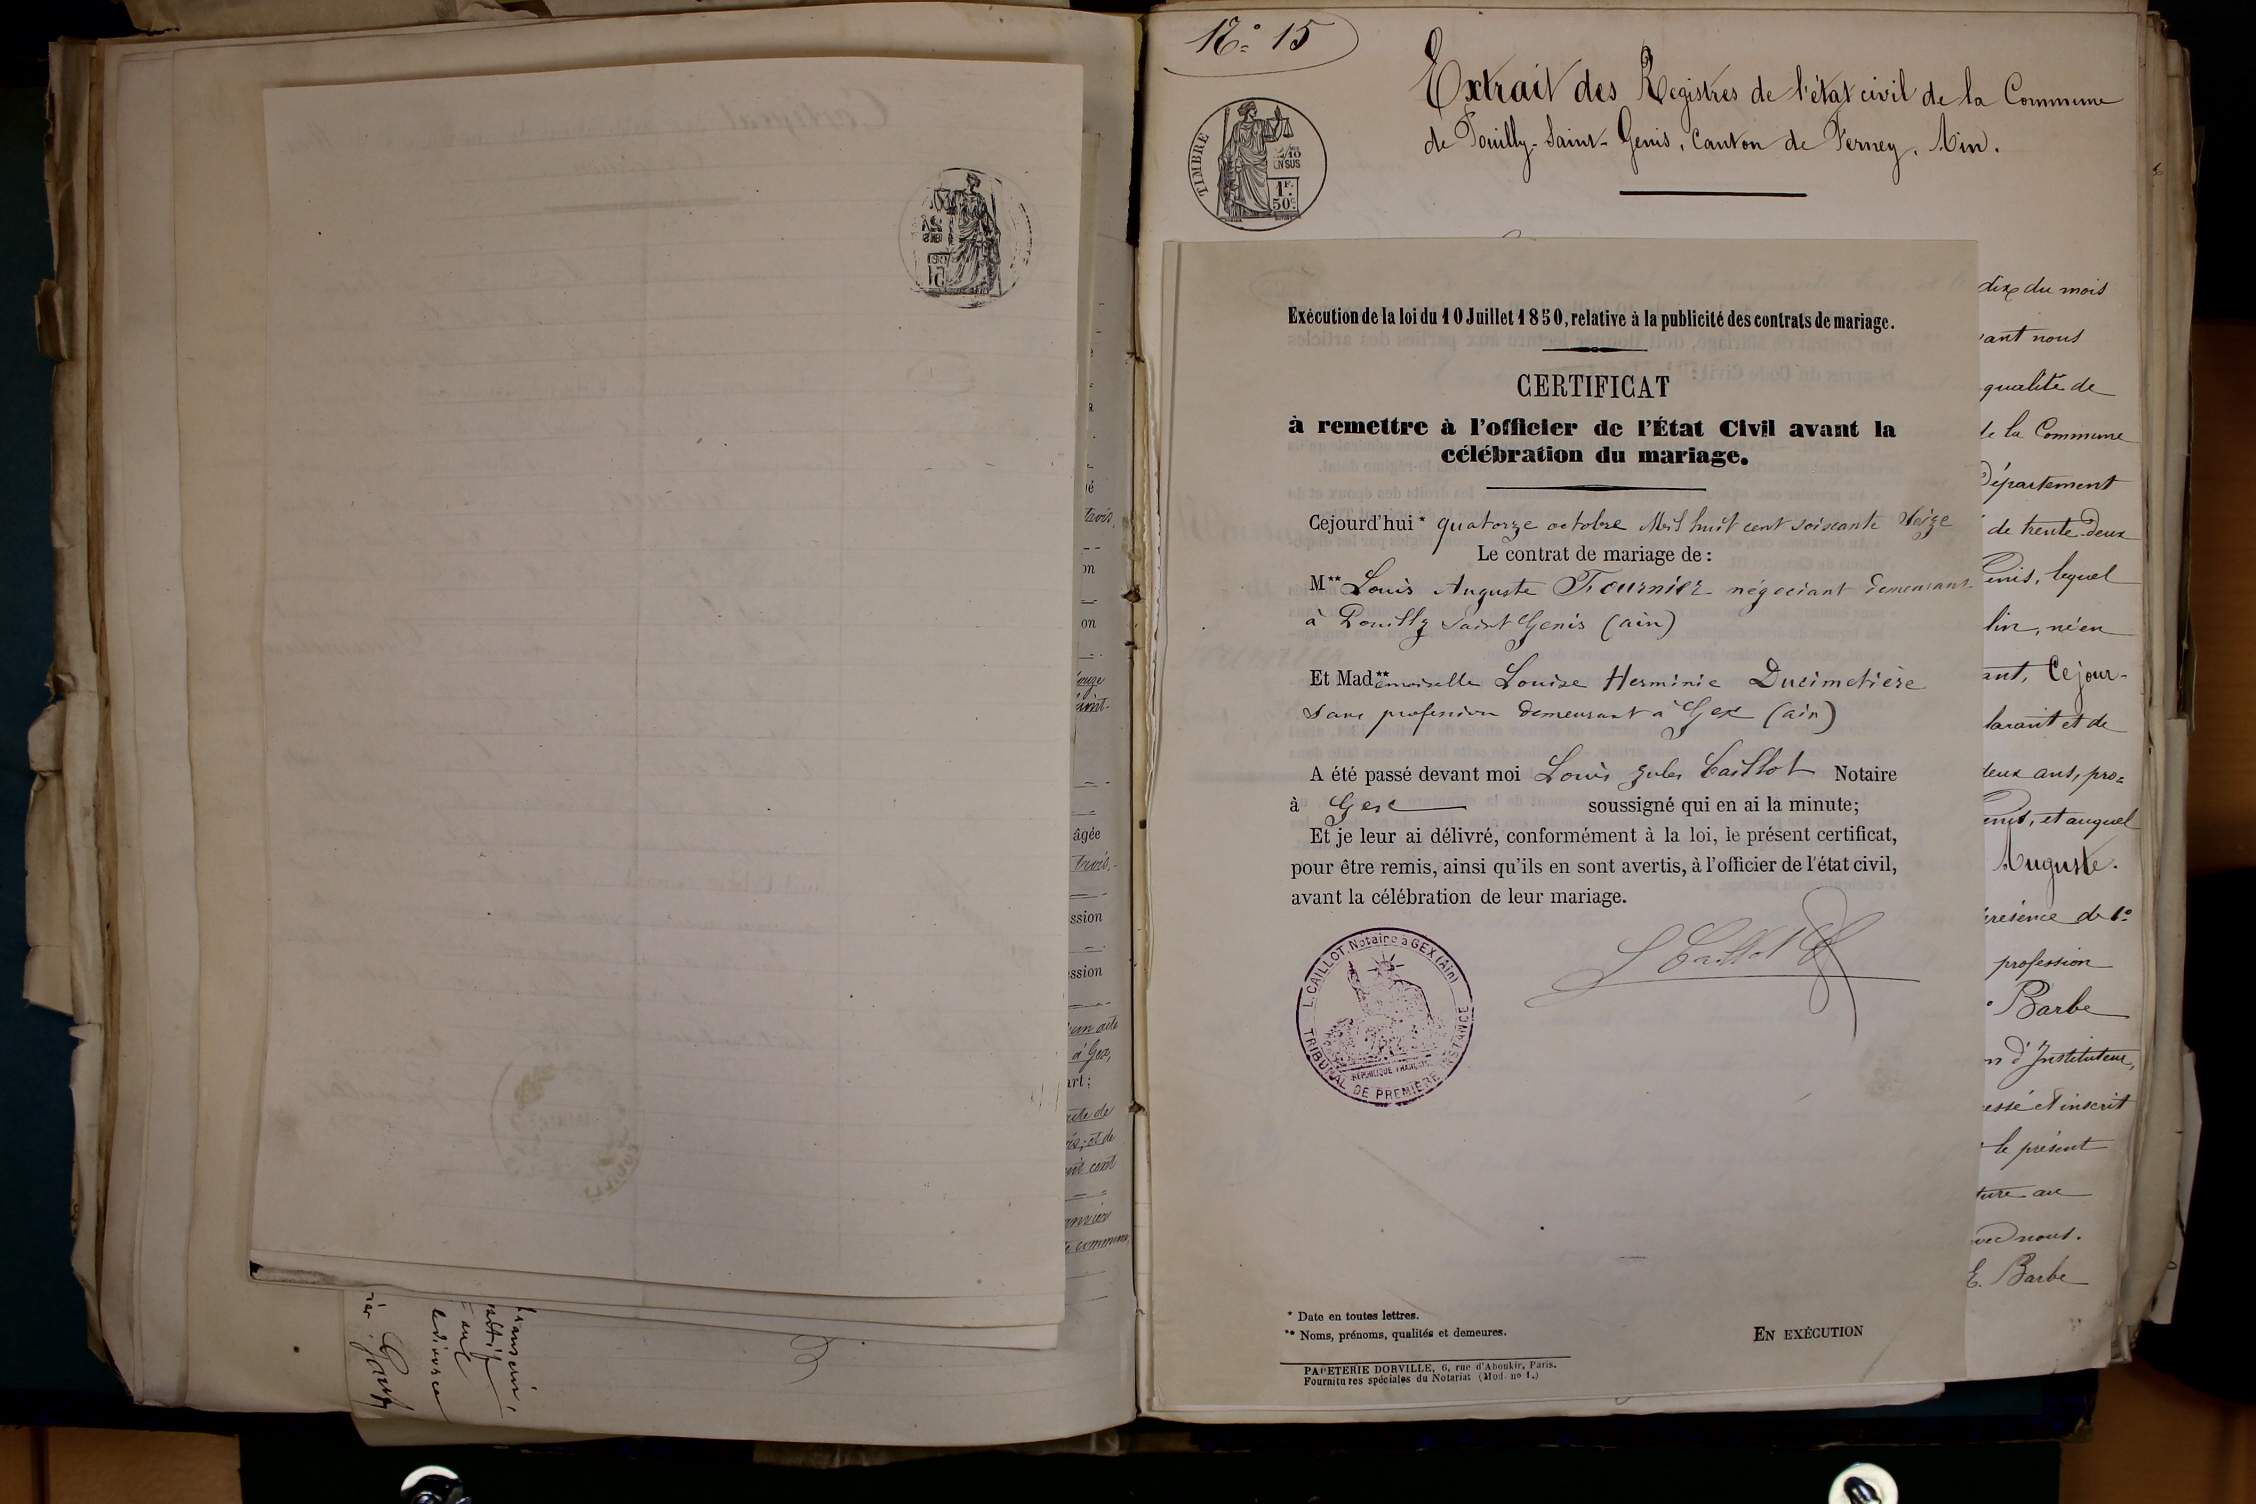 N.° 15
Extrait des Registres de l'état civil de la Commune
de Pouilly-Saint-Genis, Canton de Ferney, Ain.
TIMBRE
2/10
EN SUS
1F.
50c.
Exécution de la loi du 10 Juillet 1850, relative à la publicité des contrats de mariage.
CERTIFICAT
à remettre à l'officier de l'État Civil avant la
célébration du mariage.
Cejourd'hui * quatorze octobre Mil huit cent soixante seize
Le contrat de mariage de :
M** Louis Auguste Fournier négociant demeurant
à Pouilly Saint Genis (ain)
Et Mad**emoiselle Louise Herminie Ducimetière
sans profession demeurant à Gex (ain)
A été passé devant moi Louis Jules Caillot Notaire
à Gex soussigné qui en ai la minute;
Et je leur ai délivré, conformément à la loi, le présent certificat,
pour être remis, ainsi qu'ils en sont avertis, à l'officier de l'état civil,
avant la célébration de leur mariage.
L Caillot
L. CAILLOT, Notaire à GEX (Ain)
TRIBUNAL DE PREMIÈRE INSTANCE
RÉPUBLIQUE FRANÇAISE
* Date en toutes lettres.
** Noms, prénoms, qualités et demeures.
EN EXÉCUTION
PAPETERIE DORVILLE, 6, rue d'Aboukir, Paris.
Fournitures spéciales du Notariat (Mod. no 1.)
dix du mois
vant nous
qualité de
de la Commune
Département
de trente deux
Genis, lequel
lin, né en
ant, Cejour-
larant et de
deux ans, pro=
Genis, et auquel
Auguste.
présence de 1°
profession
Barbe
n d'Instituteur,
essé et inscrit
le présent
ture au
vec nous.
E. Barbe
tavis,
on
on
âgée
Travis,
ssion
ssion
un acte
à Gex,
art;
acte de
et de
cent
commune,